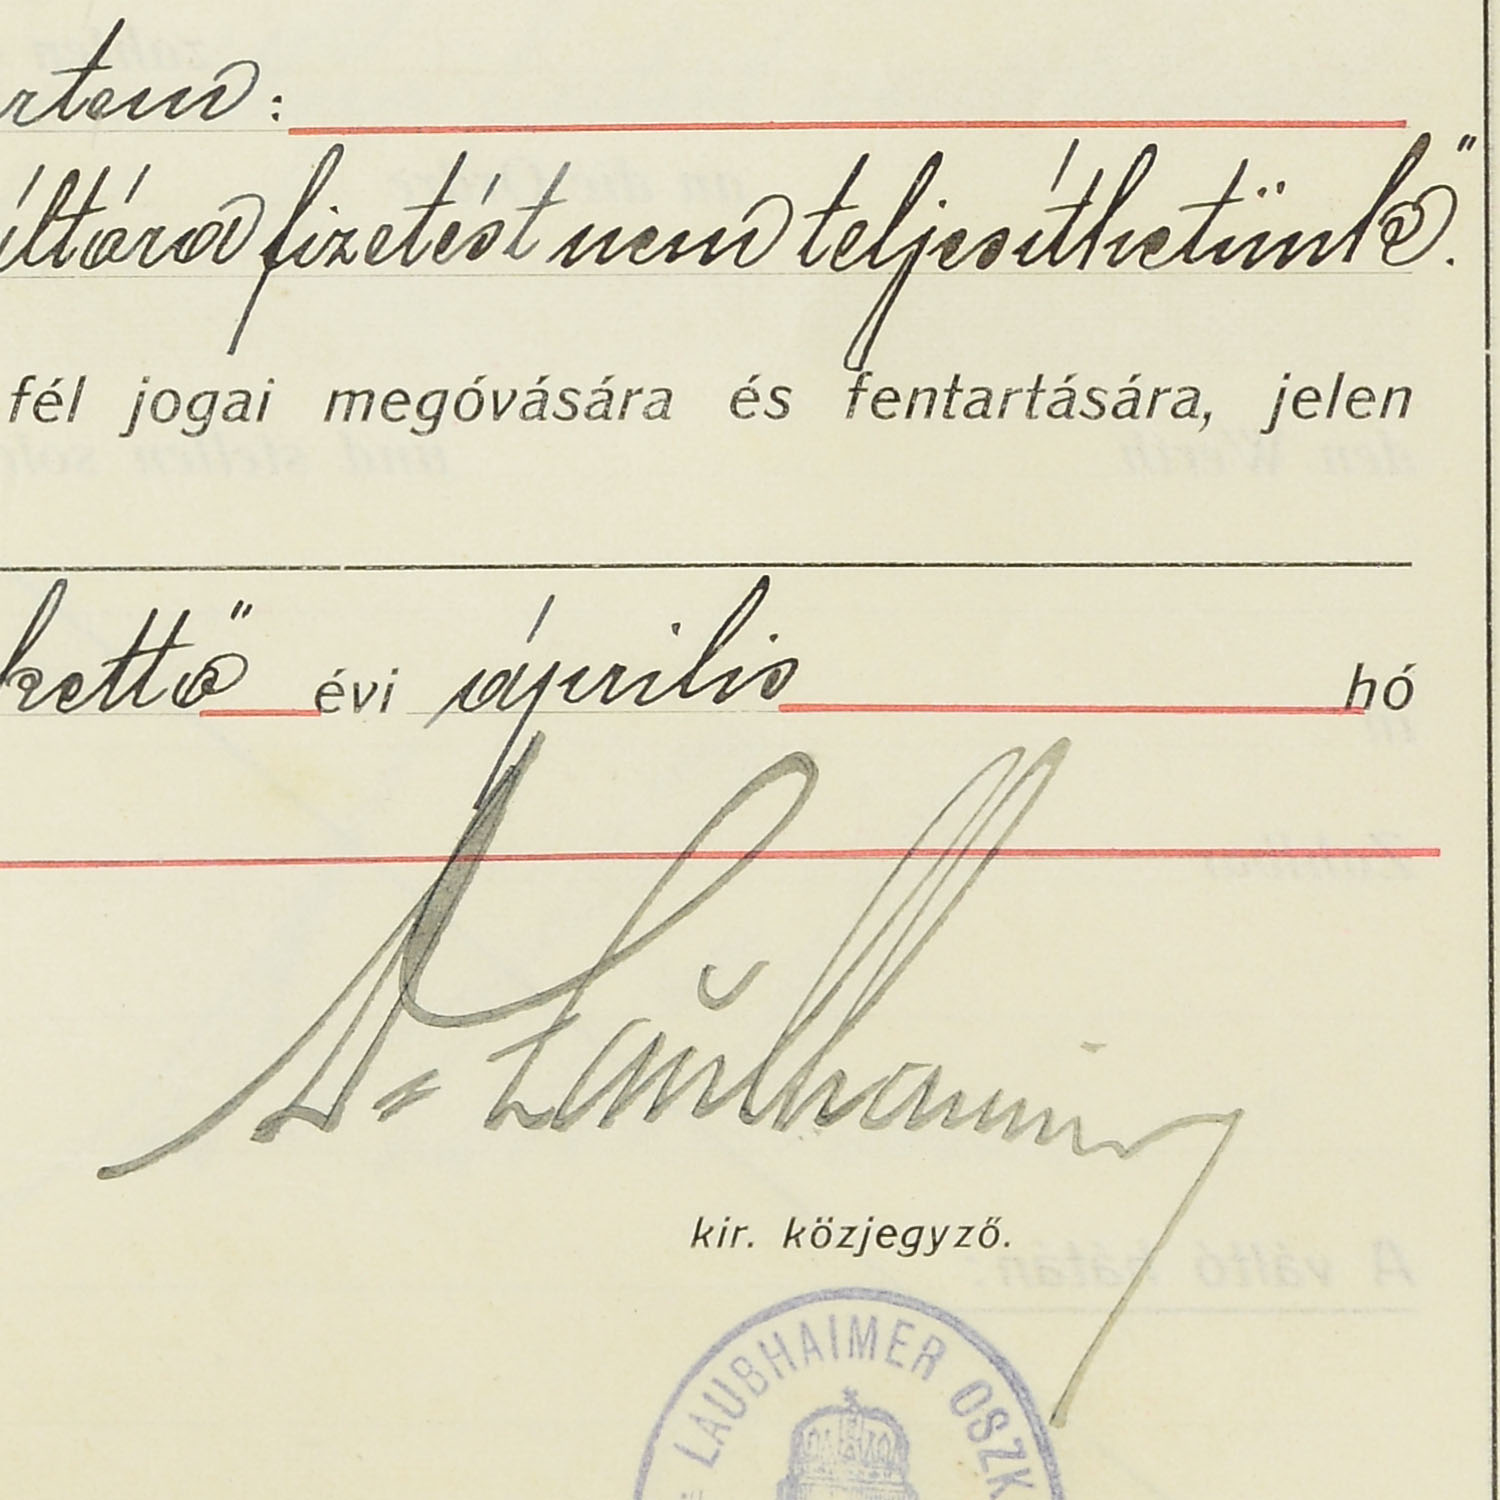 rtem:
últára fizetést nem teljesíthetünk".
fél jogai megóvására és fentartására, jelen
kettő évi április hó
Dr Laubhaimer
kir. közjegyző.
LAUBHAIMER OSZK